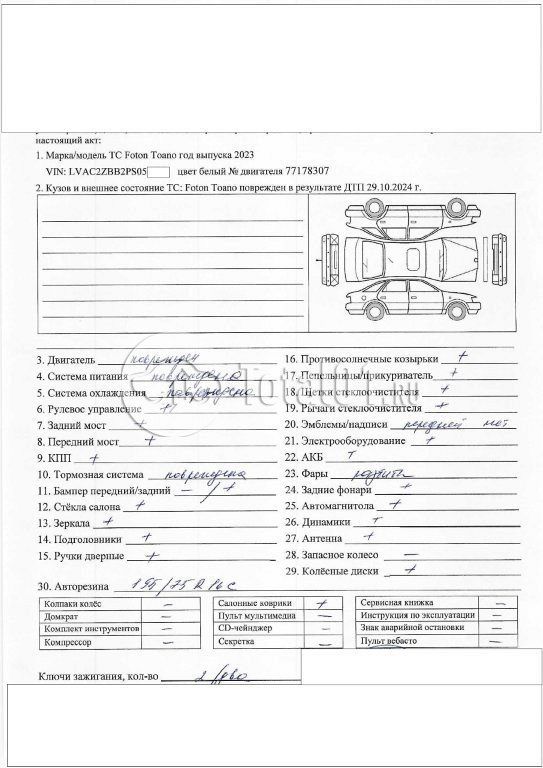 настоящий акт:
1. Марка/модель ТС Foton Toano год выпуска 2023
VIN: LVAC2ZBB2PS05 цвет белый № двигателя 77178307
2. Кузов и внешнее состояние ТС: Foton Toano поврежден в результате ДТП 29.10.2024 г.
3. Двигатель поврежден 16. Противосолнечные козырьки +
4. Система питания повреждена 17. Пепельницы/прикуриватель +
5. Система охлаждения повреждена 18. Щетки стеклоочистителя +
6. Рулевое управление + 19. Рычаги стеклоочистителя +
7. Задний мост + 20. Эмблемы/надписи передней нет
8. Передний мост + 21. Электрооборудование +
9. КПП + 22. АКБ +
10. Тормозная система повреждена 23. Фары
11. Бампер передний/задний — / + 24. Задние фонари +
12. Стёкла салона + 25. Автомагнитола +
13. Зеркала + 26. Динамики +
14. Подголовники + 27. Антенна +
15. Ручки дверные + 28. Запасное колесо —
29. Колёсные диски +
30. Авторезина 195/75 R 16 C
Колпаки колёс — Салонные коврики + Сервисная книжка —
Домкрат — Пульт мультимедиа — Инструкция по эксплуатации —
Комплект инструментов — CD-чейнджер — Знак аварийной остановки —
Компрессор — Секретка — Пульт вебасто —
Ключи зажигания, кол-во 2 /два